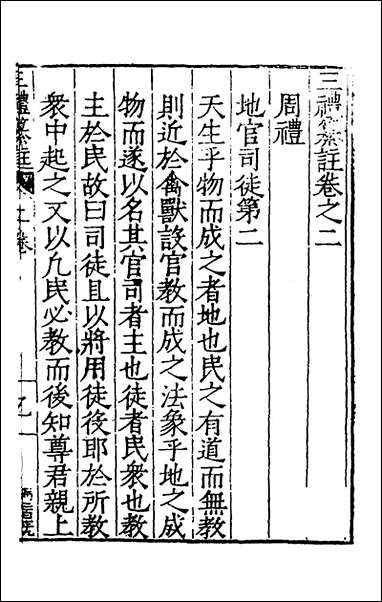 三禮纂註卷之二
周禮
地官司徒第二
天生乎物而成之者地也民之有道而無教
則近於禽獸設官教而成之法象乎地之成
物而遂以名其官司者主也徒者民衆也教
主於民故曰司徒且以將用徒役耶於所教
衆中起之又以凢民必教而後知尊君親上
三禮纂註 卷